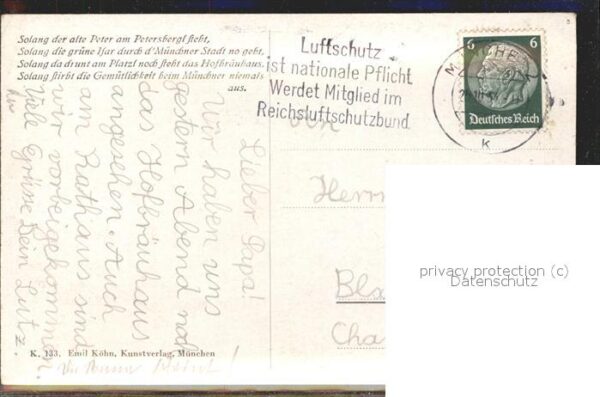 Solang der alte Peter am Petersbergl steht,
Solang die grüne Isar durch d'Münchner Stadt no geht,
Solang da drunt am Platzl noch steht das Hofbräuhaus,
Solang stirbt die Gemütlichkeit beim Münchner niemals
aus.
Luftschutz
ist nationale Pflicht
Werdet Mitglied im
Reichsluftschutzbund
MÜNCHEN
k
6 6
Deutsches Reich
Lieber Papa!
Wir haben uns
gestern Abend noch
das Hofbräuhaus
angesehen. Auch
am Rathaus sind
wir vorbeigekommen.
Viele Grüsse Dein Lutz.
Herrn
Cha
privacy protection (c)
Datenschutz
K. 133. Emil Köhn, Kunstverlag, München